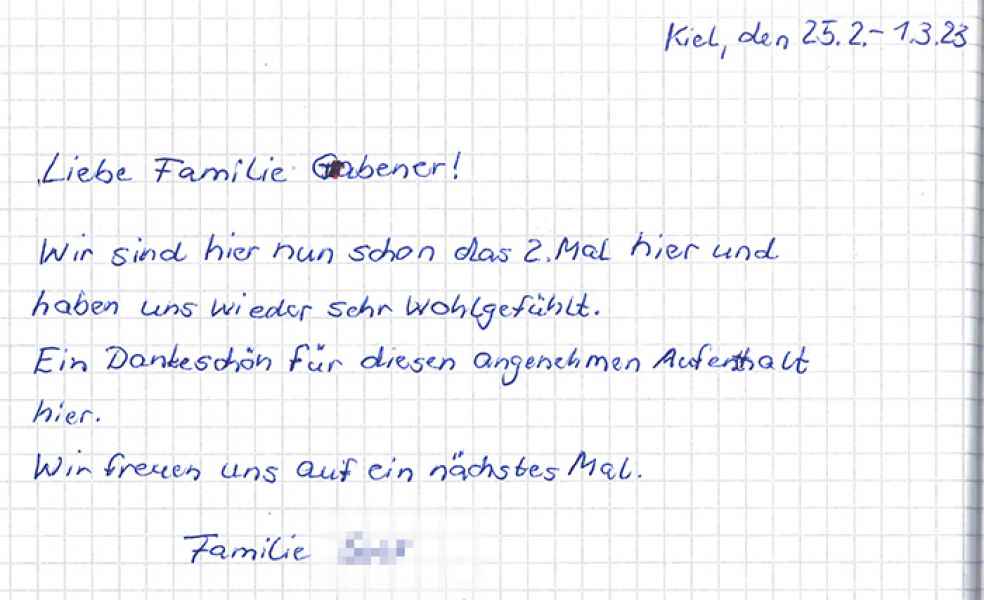 Kiel, den 25.2.- 1.3.23
Liebe Familie Grabener!
Wir sind hier nun schon das 2. Mal hier und
haben uns wieder sehr wohlgefühlt.
Ein Dankeschön für diesen angenehmen Aufenthalt
hier.
Wir freuen uns auf ein nächstes Mal.
Familie